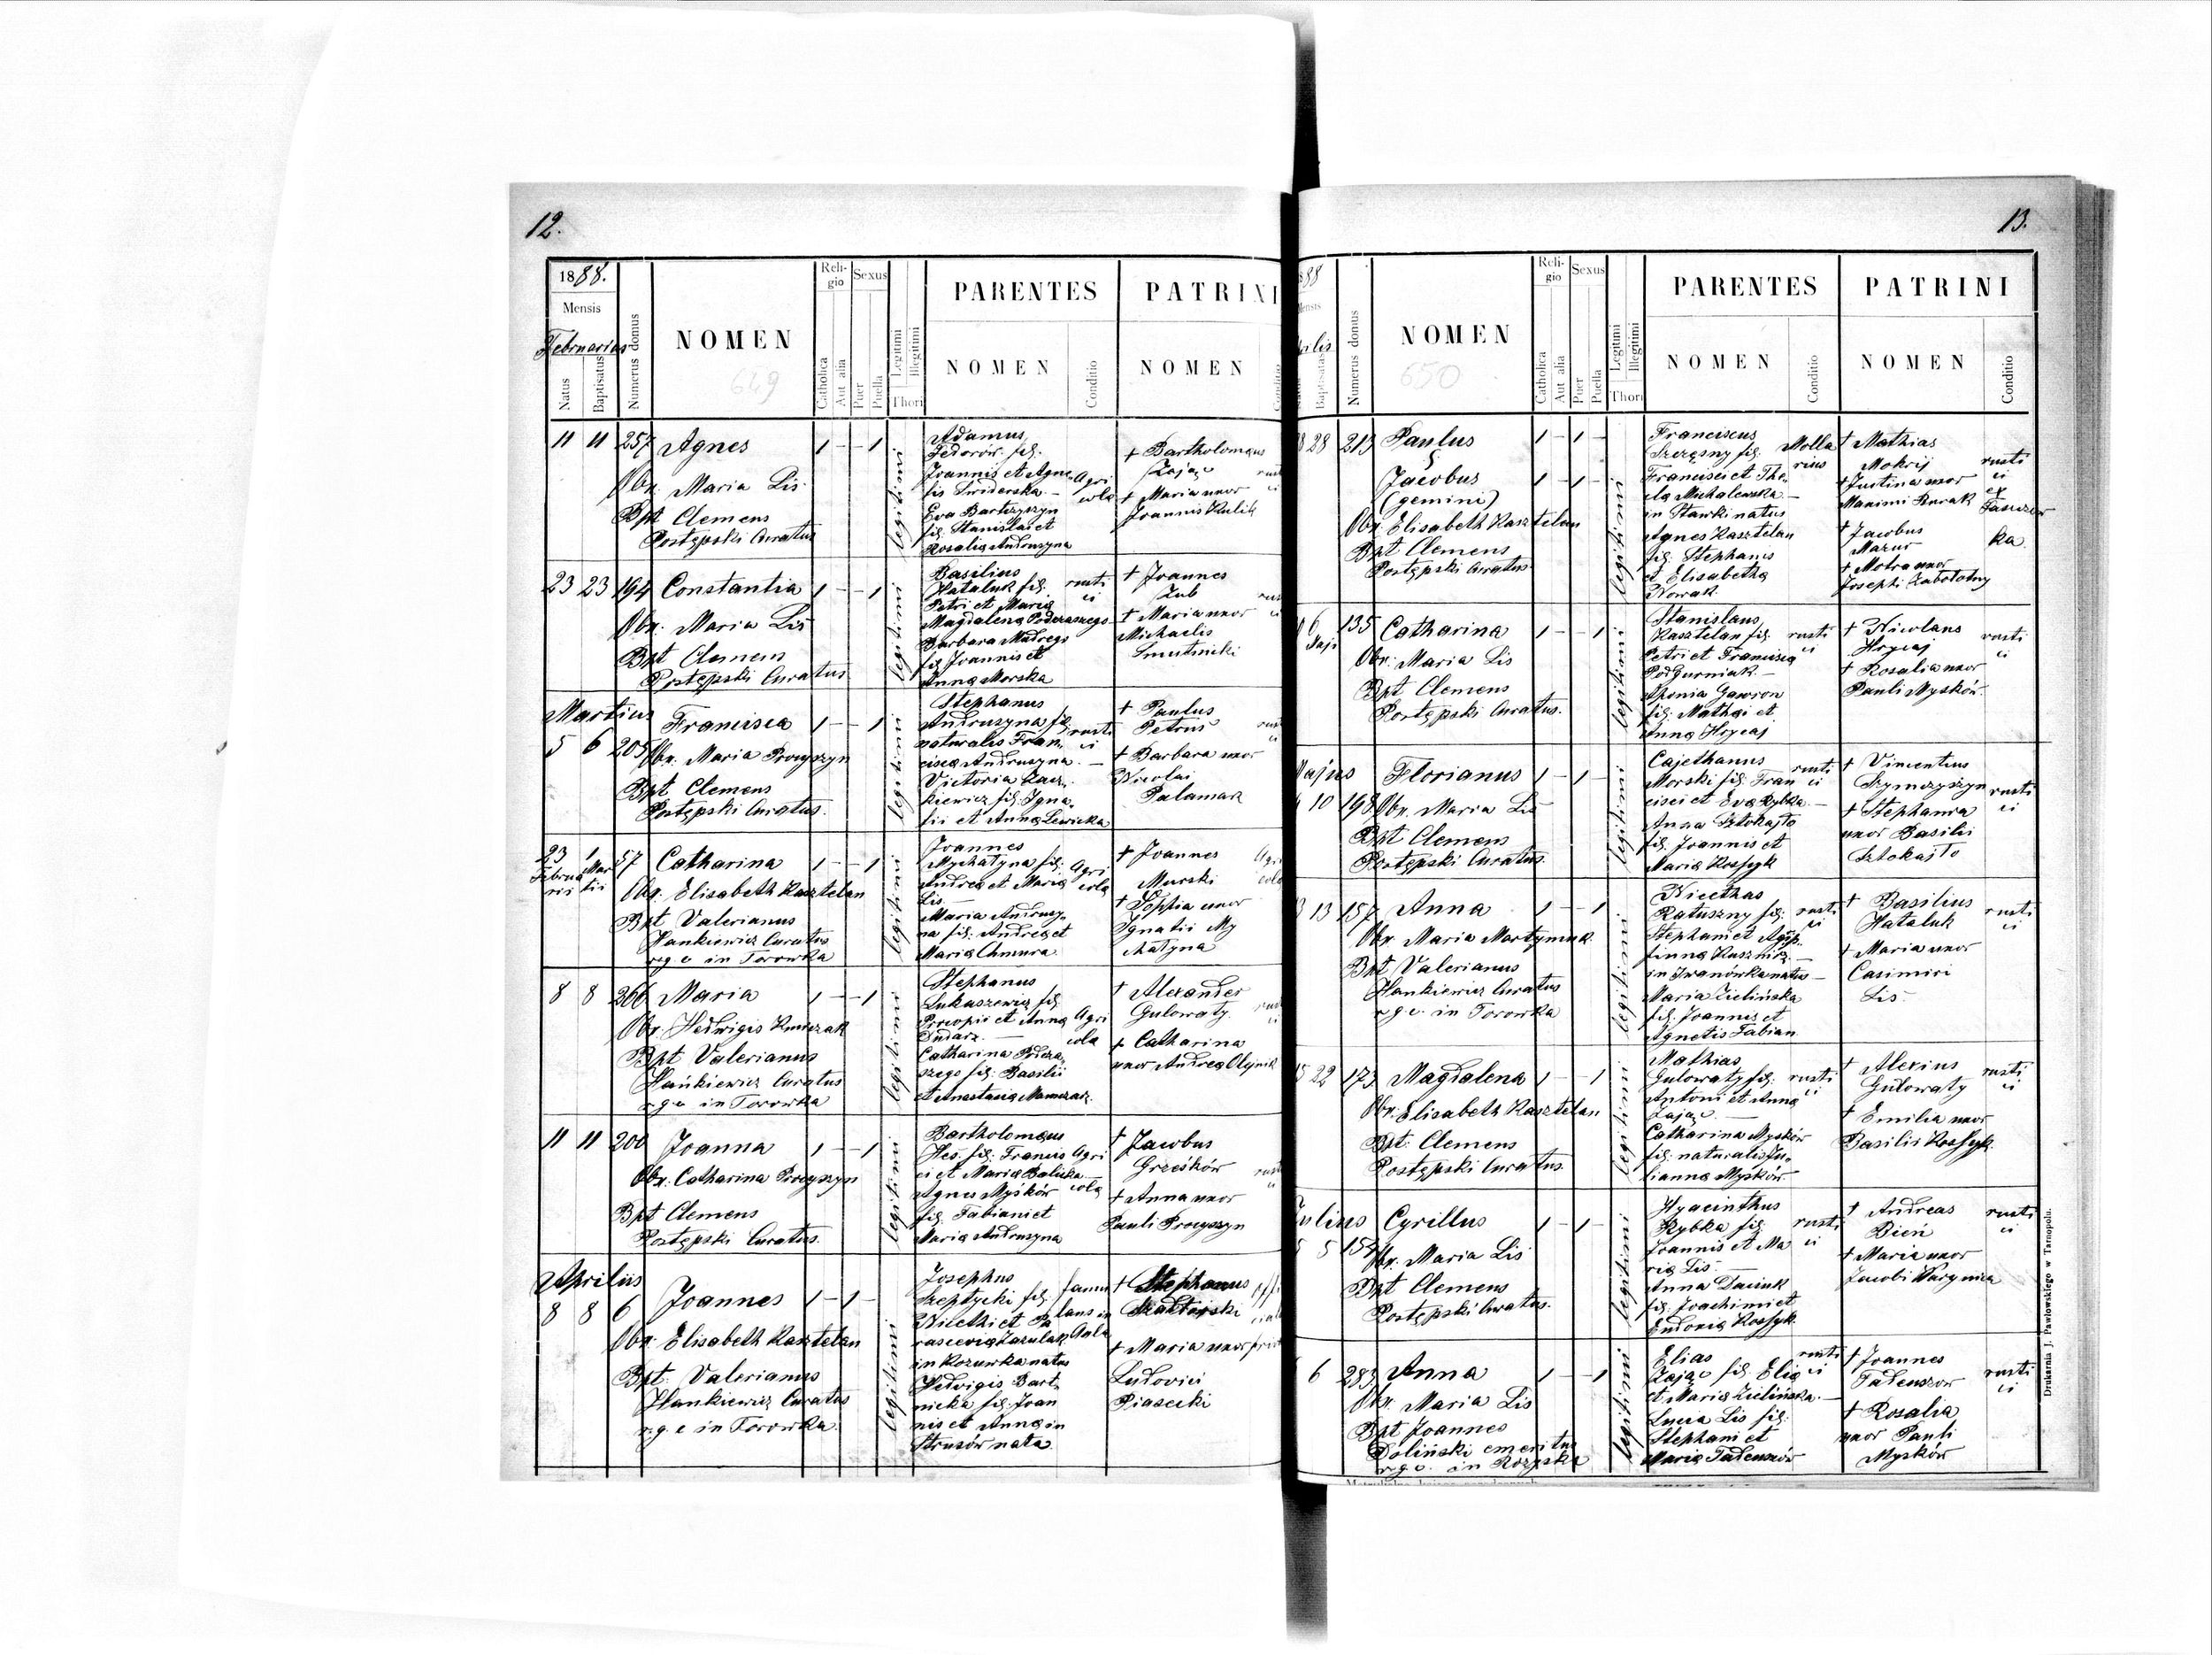 12.
1888.
Mensis
Februarius
Natus
Baptisatus
Numerus domus
NOMEN
649
Religio
Catholica
Aut alia
Sexus
Puer
Puella
Legitimi
Illegitimi
Thori
PARENTES
NOMEN
Conditio
PATRINI
NOMEN
11 11 257 Agnes 1 - - 1
Obx. Maria Lis
Bpt Clemens
Postępski Curatus
legitimi
Adamus
Fedorów fil.
Joannis et Agne-
tis Swiderska -
Eva Bartczyszyn
fil. Stanislai et
Rosaliæ Andruszyna
Agri
cola
† Bartholomæus
Zając
† Maria uxor
Joannis Kulik
23 23 194 Constantia 1 - - 1
Obx. Maria Lis
Bpt Clemens
Postępski Curatus
legitimi
Basilius
Hataluk fil.
Petri et Mariæ
Magdalena
Barbara
fil. Joannis et
Anna Morska
rusti
ci
† Joannes
Zub
† Maria uxor
Michaelis
Smutnicki
Martius
5 6 205 Francisca 1 - - 1
Obx. Maria Procyszyn
Bpt Clemens
Postępski Curatus
legitimi
Stephanus
Andruszyna fil.
naturalis Fran-
ciscæ Andruszyna -
Victoria
kiewicz fil. Igna-
tii et Annæ Lewicka
rusti
ci
† Paulus
Petrus
† Barbara uxor
Nicolai
Palamar
23 Februarii 1 Martii 57 Catharina 1 - - 1
Obx. Elisabeth Kasztelan
Bpt Valerianus
Hankiewicz Curatus
r. g. c. in Torowka
legitimi
Joannes
Mychatyna fil.
Andreæ et Mariæ
Lis -
Maria Andruszy-
na fil. Andreæ et
Mariæ Chmura
Agri
cola
† Joannes
Murski
† Sophia uxor
Ignatii My
chatyna
8 8 266 Maria 1 - - 1
Obx. Hedwigis
Bpt Valerianus
Hankiewicz Curatus
r. g. c. in Torowka
legitimi
Stephanus
Lukaszewicz fil.
Procopii et Annæ
Dudarz -
Catharina Podcza-
szego fil. Basilii
et Anastasiæ
Agri
cola
† Alexander
Gulowaty
† Catharina
uxor Andreæ Olejnik
11 11 200 Joanna 1 - - 1
Obx. Catharina Procyszyn
Bpt Clemens
Postępski Curatus
legitimi
Bartholomæus
Hes fil. Francis
ci et Mariæ Balicka
Agnes Myśków
fil. Fabiani et
Mariæ Andruszyna
Agri
cola
† Jacobus
Grześków
† Anna uxor
Pauli Procyszyn
Aprilis
8 8 6 Joannes 1 - 1 -
Obx. Elisabeth Kasztelan
Bpt. Valerianus
Hankiewicz Curatus
r. g. c. in Torowka
legitimi
Josephus
Szeptycki fil.
Nicetki et Pa
rascevia Zazulak
in Kozuwka natus
Hedvigis Bart-
nicka fil. Joan
nis et Anna in
Strusów nata
famu
lans in
Aula
† Stephanus
† Maria uxor
Ludovici
Piasecki
13.
NOMEN
650
Numerus domus
Religio
Catholica
Aut alia
Sexus
Puer
Puella
Legitimi
Illegitimi
Thori
PARENTES
NOMEN
Conditio
PATRINI
NOMEN
Conditio
28 213 Paulus 1 - 1 -
&
Jacobus 1 - 1 -
(gemini)
Obx. Elisabeth Kasztelan
Bpt Clemens
Postępski Curatus
legitimi
Franciscus
Szczęsny fil.
Francisci et The-
cla Michalewska -
in Stawki natus
Agnes Kasztelan
fil. Stephani
et Elisabetha
Nowak
Molla
rius
† Mathias
Mokrij
† Justina uxor
Maximi Burak
† Jacobus
Mazur
† Motra uxor
Josephi Zabolotny
rusti
ci
ex
6 Maji 135 Catharina 1 - - 1
Obx. Maria Lis
Bpt Clemens
Postępski Curatus
legitimi
Stanislaus
Kasztelan fil.
Petri et Francisca
Podgurniak -
Aponia Gawron
fil. Mathæi et
Anna Hrycaj
rusti
ci
† Nicolaus
Hrycaj
† Rosalia uxor
Pauli Myśków
rusti
ci
Majus
10 198 Florianus 1 - 1 -
Obx. Maria Lis
Bpt Clemens
Postępski Curatus
legitimi
Cajethanus
Morski fil. Fran
cisci et Eva Rybka -
Anna Sztokajlo
fil. Joannis et
Mariæ Kossyk
rusti
ci
† Vincentius
Szymczyszyn
† Stephania
uxor Basilii
Sztokajlo
rusti
ci
13 13 157 Anna 1 - - 1
Obx. Maria Martyniuk
Bpt Valerianus
Hankiewicz Curatus
r. g. c. in Torowka
legitimi
Nicethas
Ratuszny fil.
Stephani et Agrip-
finna Kusznirz -
in Iwanówka natus -
Maria Zielińska
fil. Joannis et
Agnetis Fabian
rusti
ci
† Basilius
Hataluk
† Maria uxor
Casimiri
Lis
rusti
ci
15 22 173 Magdalena 1 - - 1
Obx. Elisabeth Kasztelan
Bpt. Clemens
Postępski Curatus
legitimi
Mathias
Gulowaty fil.
Antoni et Anna
Zając -
Catharina Myśków
fil. naturalis Ju-
lianna Myśków
rusti
ci
† Alexius
Gulowaty
† Emilia uxor
Basilii Kossyk
rusti
ci
Julius
5 5 154 Cyrillus 1 - 1 -
Obx. Maria Lis
Bpt Clemens
Postępski Curatus
legitimi
Hyacinthus
Rybka fil.
Joannis et Ma
ria Lis -
Anna Daciuk
fil. Joachimi et
Eudoxia Kossyk
rusti
ci
† Andreas
Bień
† Maria uxor
Jacobi Warynica
rusti
ci
6 283 Anna 1 - - 1
Obx. Maria Lis
Bpt Joannes
Doliński emeritus
r. g. c. in
legitimi
Elias
Zając fil. Elia
et Mariæ Zielińska -
Lucia Lis fil.
Stephani et
Mariæ Tadeuszów
rusti
ci
† Joannes
Tadeuszow
† Rosalia
uxor Pauli
Myśków
rusti
ci
Drukarnia J. Pawłowskiego w Tarnopolu.